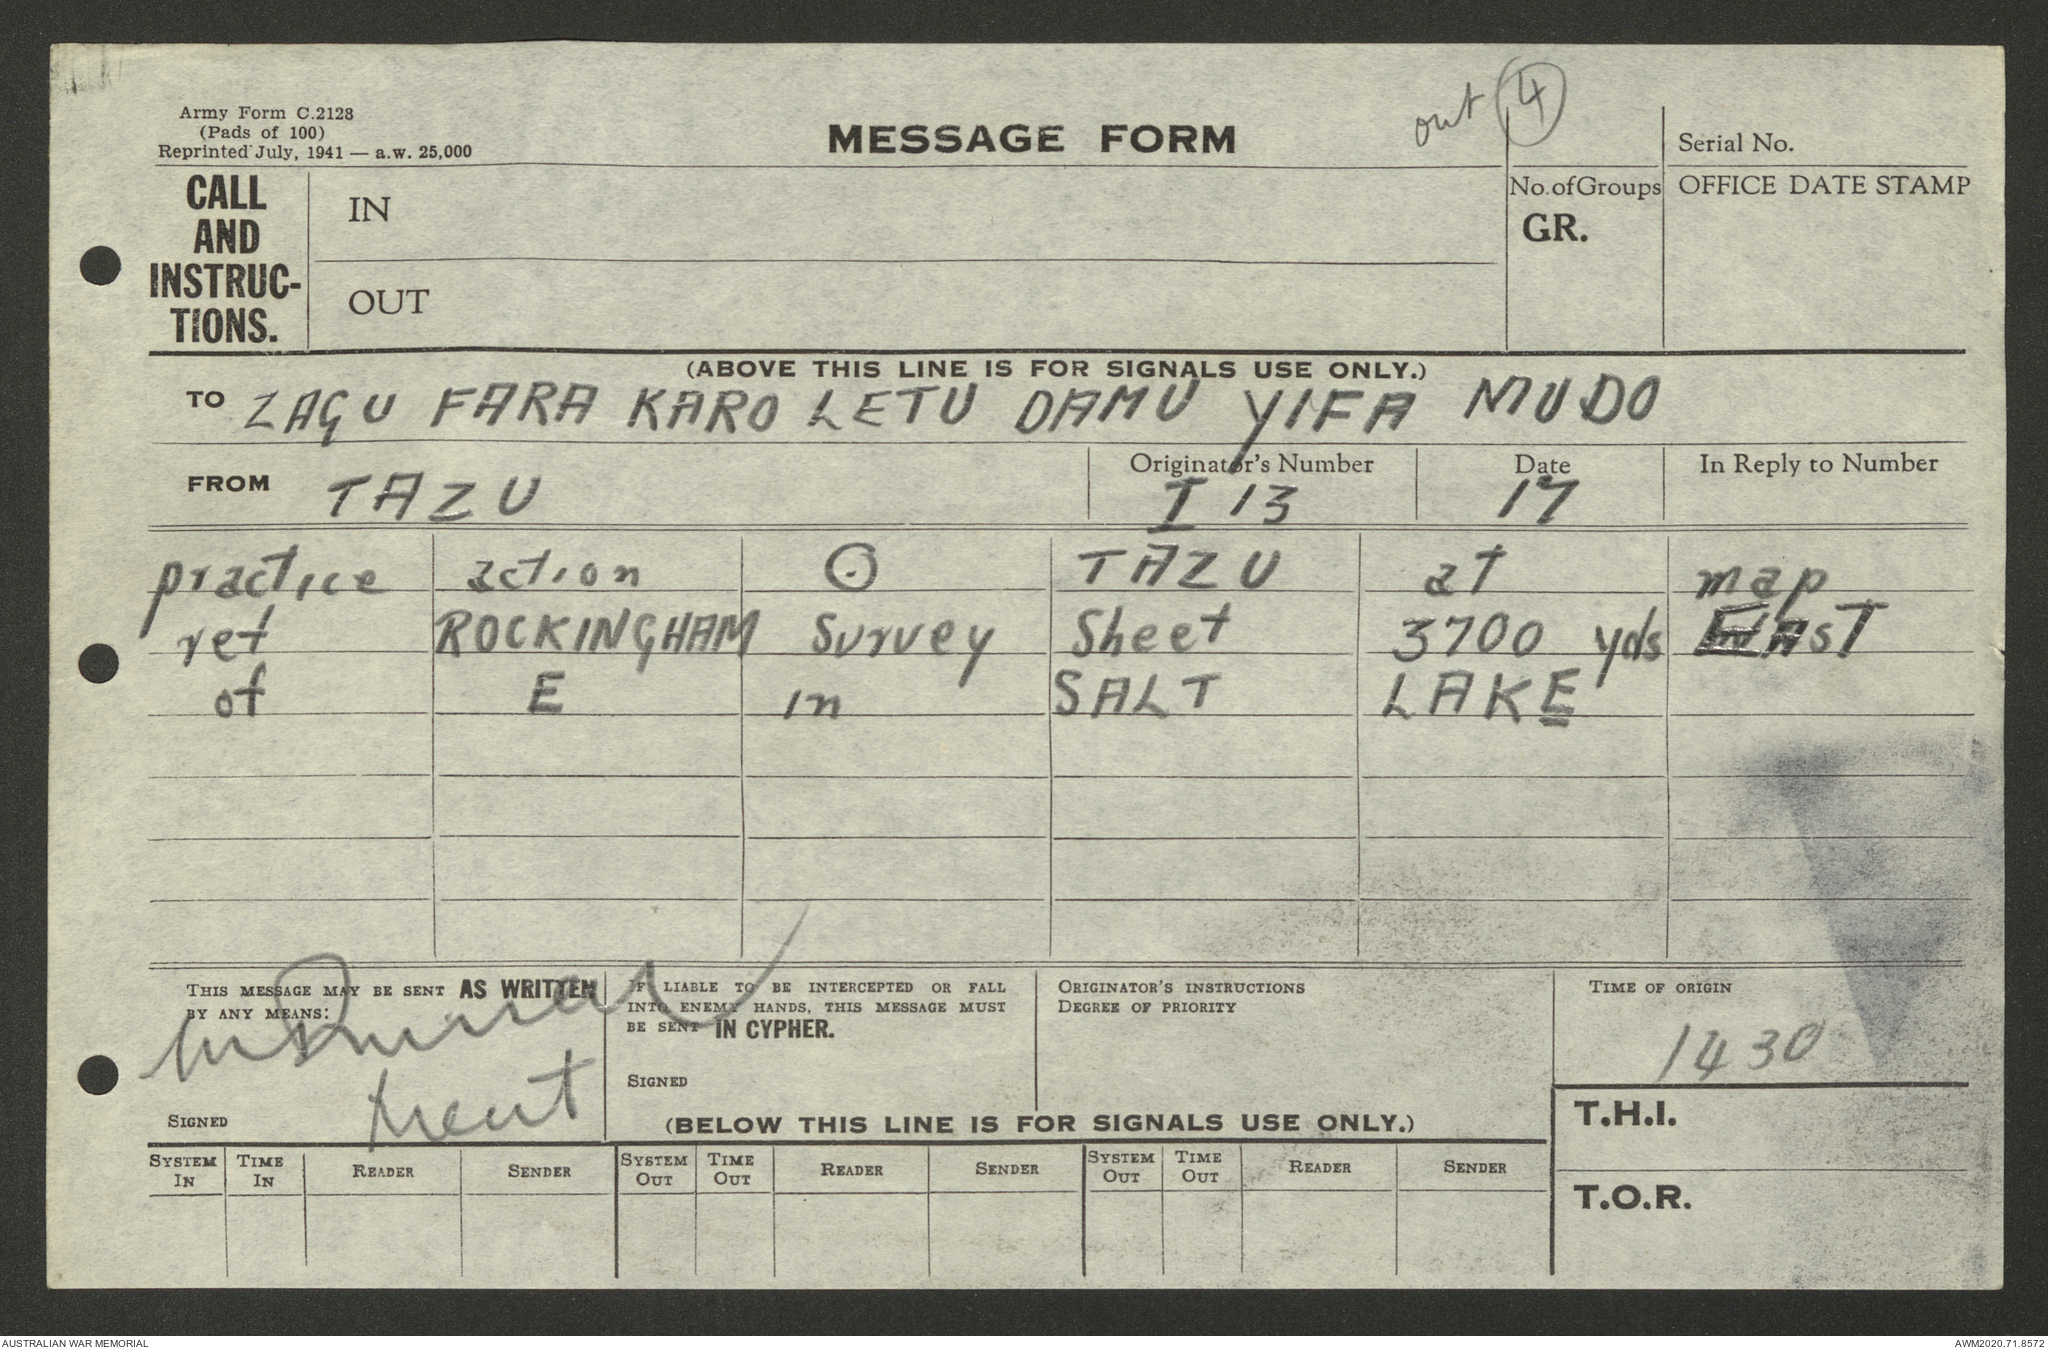 Army Form C.2128
(Pads of 100)
Reprinted July, 1941 — a.w. 25,000
MESSAGE FORM
out 4
Serial No.
CALL AND INSTRUC-TIONS.
IN
OUT
No. of Groups
GR.
OFFICE DATE STAMP
(ABOVE THIS LINE IS FOR SIGNALS USE ONLY.)
TO ZAGU FARA KARO LETU DAMU YIFA MUDO
FROM TAZU
Originator's Number
I 13
Date
17
In Reply to Number
practice action ⊙ TAZU at map
ref ROCKINGHAM Survey Sheet 3700 yds EAST
of E in SALT LAKE
THIS MESSAGE MAY BE SENT AS WRITTEN
BY ANY MEANS:
SIGNED
IF LIABLE TO BE INTERCEPTED OR FALL
INTO ENEMY HANDS, THIS MESSAGE MUST
BE SENT IN CYPHER.
SIGNED
ORIGINATOR'S INSTRUCTIONS
DEGREE OF PRIORITY
TIME OF ORIGIN
1430
(BELOW THIS LINE IS FOR SIGNALS USE ONLY.)
T.H.I.
T.O.R.
SYSTEM IN TIME IN READER SENDER SYSTEM OUT TIME OUT READER SENDER SYSTEM OUT TIME OUT READER SENDER
AUSTRALIAN WAR MEMORIAL
AWM2020.71.8572